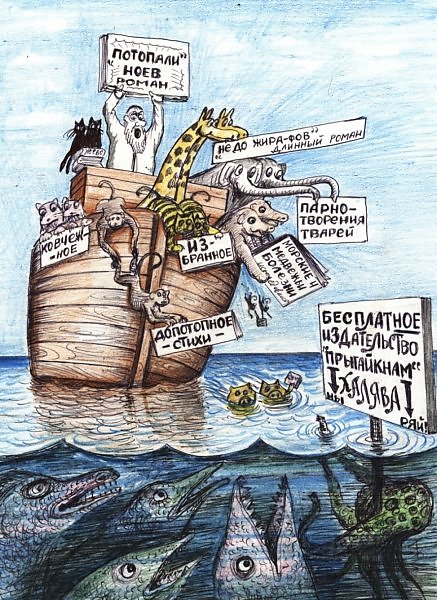 ПОТОПАЛИ"
"НОЕВ
РОМАН
"НЕДО ЖИРА-ФОВ"
ДЛИННЫЙ РОМАН
ПАРНО-
ТВОРЕНИЯ
ТВАРЕЙ
КОВЧЕЖ-
-НОЕ
ИЗ-
БРАННОЕ
МОРСКИЕ И
МЕДВЕЖЬИ
БОЛЕЗНИ
ДОПОТОПНОЕ
-СТИХИ-
БЕСПЛАТНОЕ
ИЗДАТЕЛЬСТВО
"ПРЫГАЙКНАМ"
ХАЛЯВА
НЫ РЯЙ!